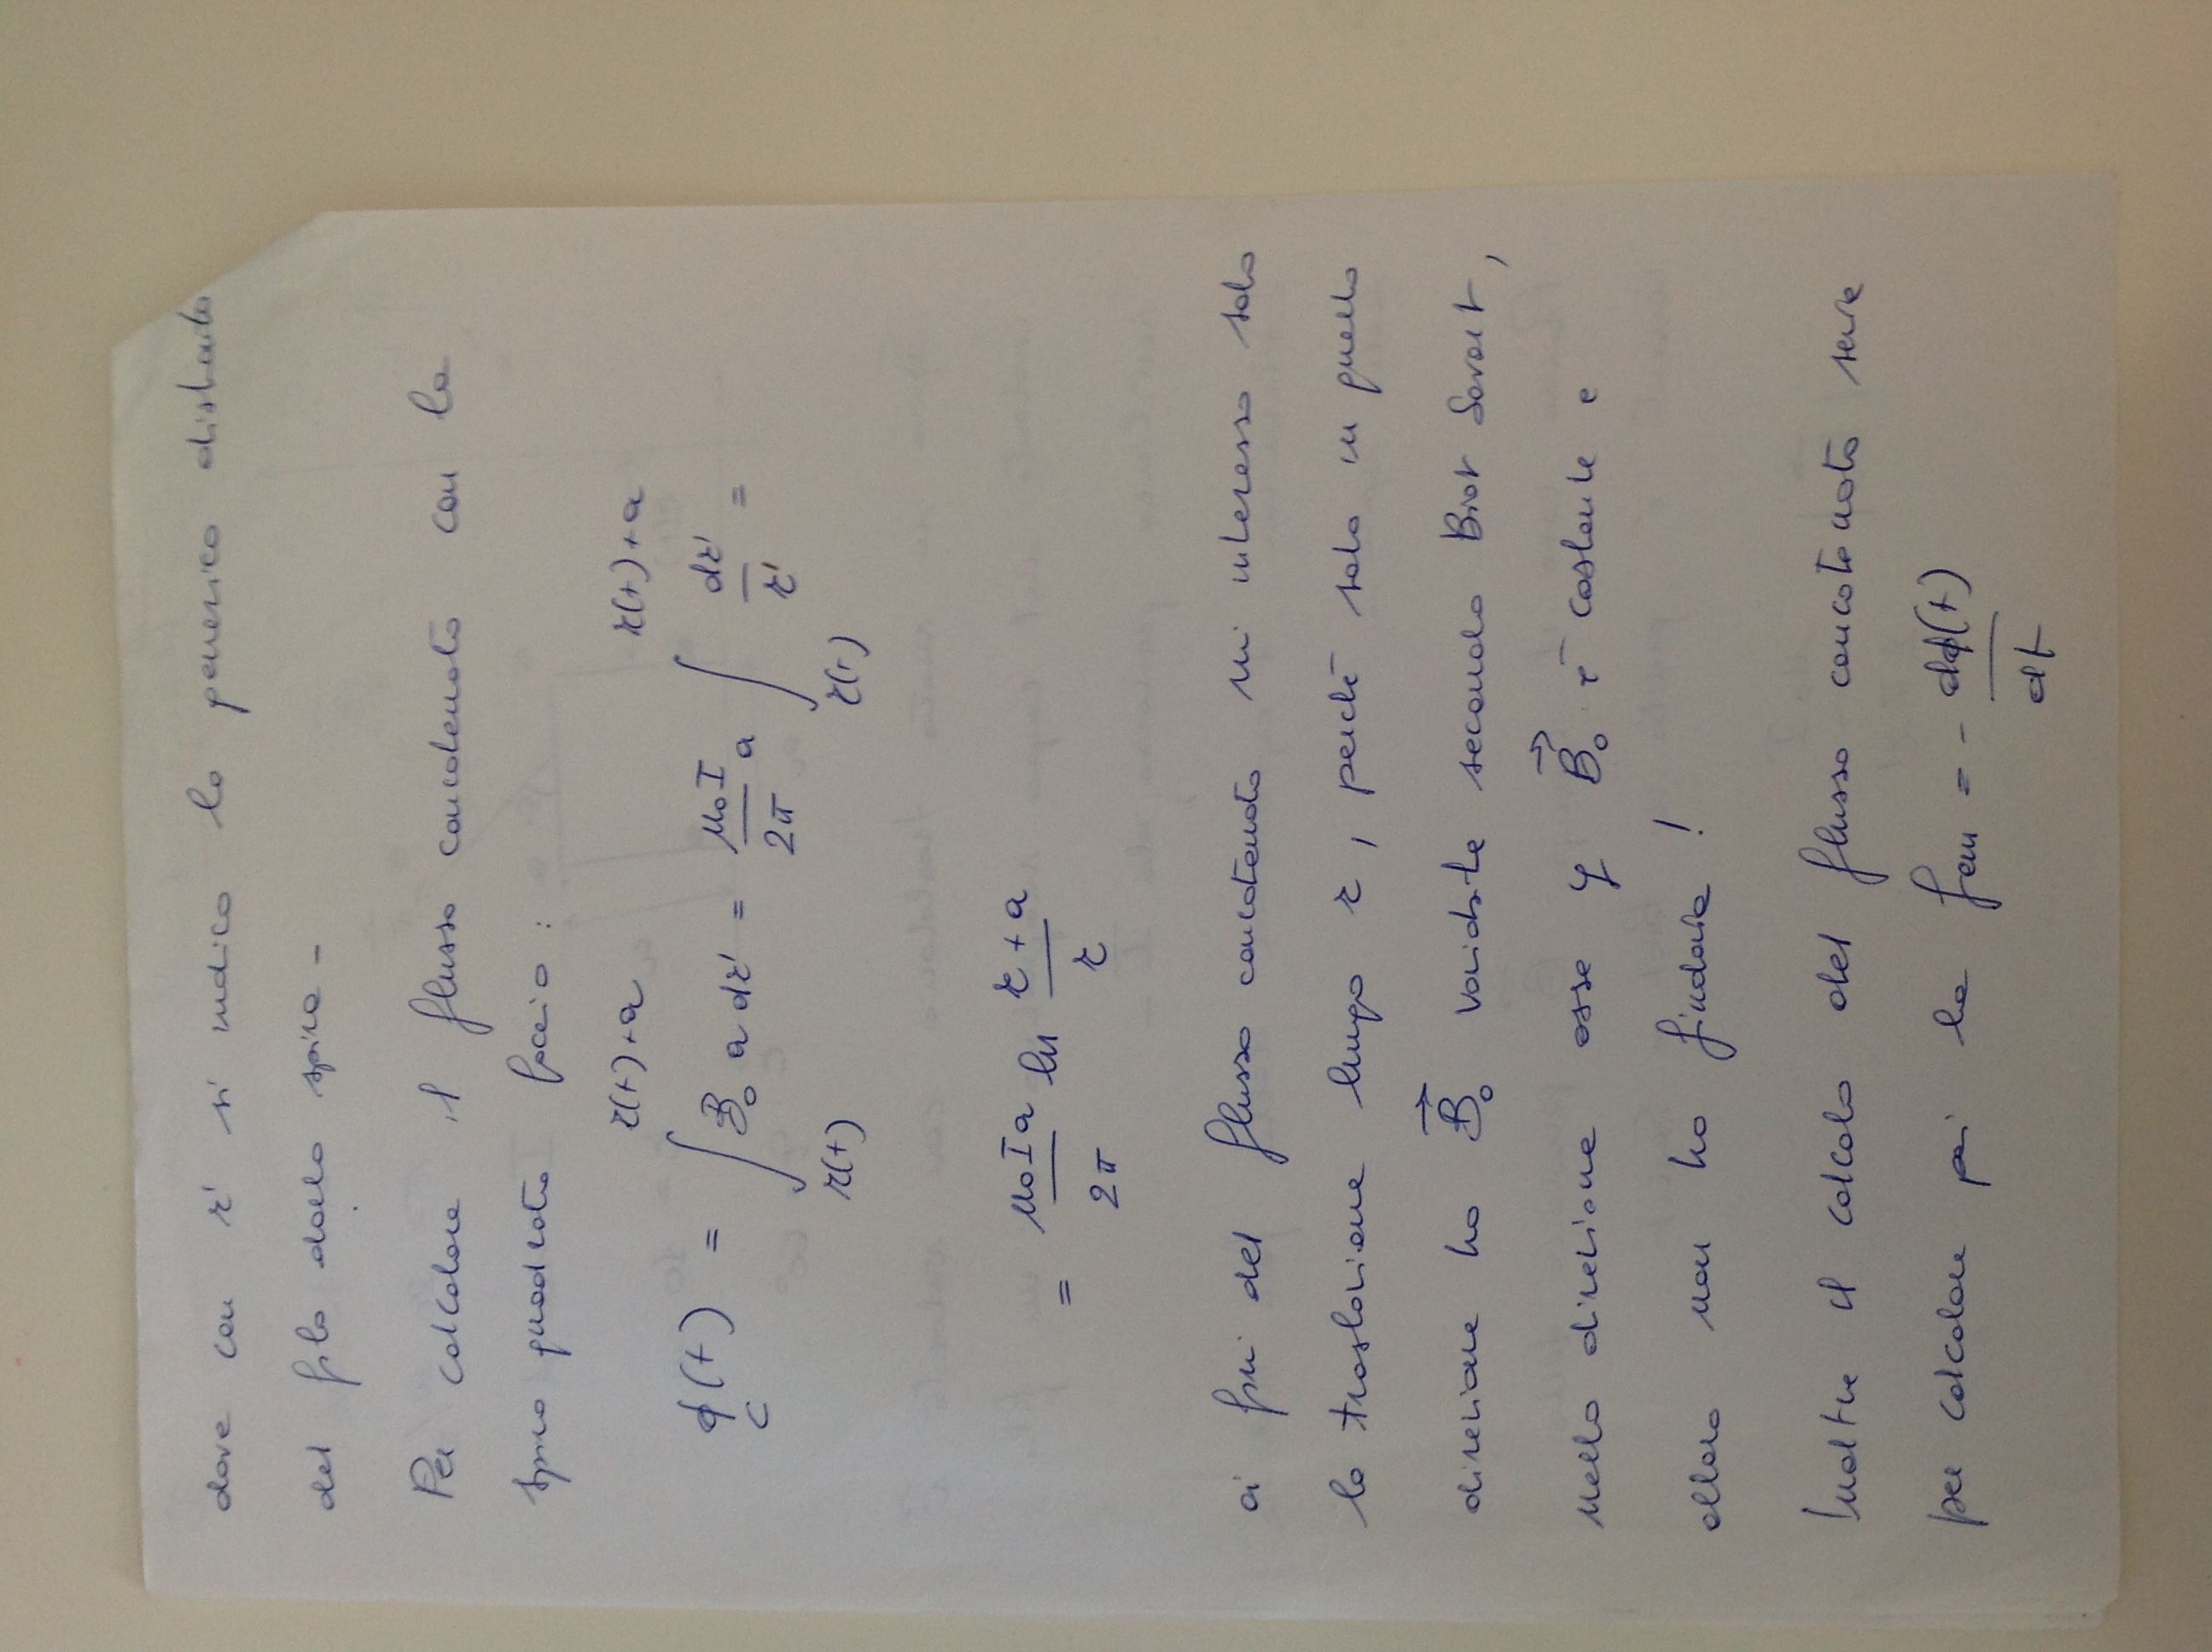 dove con r' si indica la generica distanza
del filo dalla spira -
Per calcolare il flusso concatenato con la
spira quadrata faccio :
r(t)+a r(t)+a
ϕc(t) = ∫ B₀ a dr' = μ₀I/2π a ∫ dr'/r' =
r(t) r(t)
= μ₀Ia/2π ln r+a/r
ai fini del flusso concatenato mi interessa solo
la traslazione lungo r, perché solo in quella
direzione ho B₀ variabile secondo Biot Savart,
nella direzione asse y B₀ è costante e
allora non ho
Inoltre il calcolo del flusso concatenato serve
per calcolare poi la fem = - dϕ(t)/dt